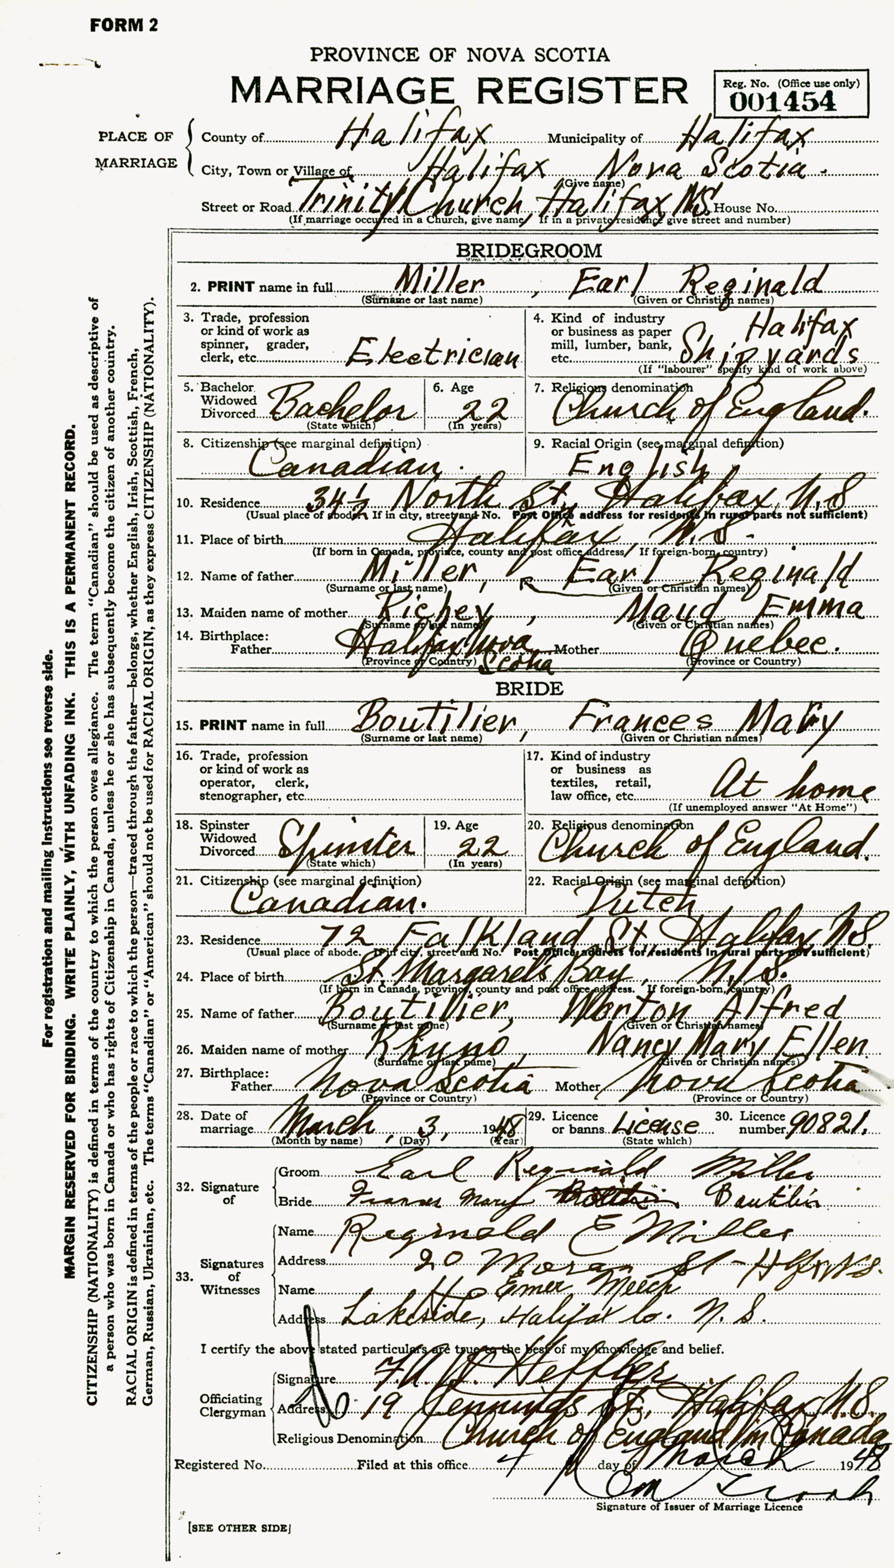 FORM 2
PROVINCE OF NOVA SCOTIA
MARRIAGE REGISTER
Reg. No. (Office use only)
001454
PLACE OF MARRIAGE
County of Halifax Municipality of Halifax
City, Town or Village of Halifax Nova Scotia.
(Give name)
Street or Road Trinity Church, Halifax NS. House No.
(If marriage occurred in a Church, give name. If in a private residence give street and number)
BRIDEGROOM
2. PRINT name in full Miller, Earl Reginald
(Surname or last name) (Given or Christian names)
3. Trade, profession or kind of work as spinner, grader, clerk, etc. Electrician
4. Kind of industry or business as paper mill, lumber, bank, etc. Halifax Shipyards
(If "labourer" specify kind of work above)
5. Bachelor Widowed Divorced Bachelor
(State which)
6. Age 22
(In years)
7. Religious denomination Church of England.
8. Citizenship (see marginal definition) Canadian.
9. Racial Origin (see marginal definition) English.
10. Residence 34½ North St. Halifax, N.S
(Usual place of abode. If in city, street and No. Post Office address for residents in rural parts not sufficient)
11. Place of birth Halifax, N.S.
(If born in Canada, province, county and post office address. If foreign-born, country)
12. Name of father Miller, Earl Reginald
(Surname or last name) (Given or Christian names)
13. Maiden name of mother Richey, Maud Emma
(Surname or last name) (Given or Christian names)
14. Birthplace: Father Halifax Nova Scotia Mother Quebec.
(Province or Country) (Province or Country)
BRIDE
15. PRINT name in full Boutilier, Frances Mary
(Surname or last name) (Given or Christian names)
16. Trade, profession or kind of work as operator, clerk, stenographer, etc.
17. Kind of industry or business as textiles, retail, law office, etc. At home
(If unemployed answer "At Home")
18. Spinster Widowed Divorced Spinster
(State which)
19. Age 22
(In years)
20. Religious denomination Church of England.
21. Citizenship (see marginal definition) Canadian.
22. Racial Origin (see marginal definition) Dutch
23. Residence 72 Falkland St. Halifax N.S.
(Usual place of abode. If in city, street and No. Post Office address for residents in rural parts not sufficient)
24. Place of birth St. Margarets Bay, N.S.
(If born in Canada, province, county and post office address. If foreign-born, country)
25. Name of father Boutilier, Morton Alfred
(Surname or last name) (Given or Christian names)
26. Maiden name of mother Rhyno, Nancy Mary Ellen
(Surname or last name) (Given or Christian names)
27. Birthplace: Father Nova Scotia Mother Nova Scotia
(Province or Country) (Province or Country)
28. Date of marriage March, 3, 1948
(Month by name) (Day) (Year)
29. Licence or banns License
(State which)
30. Licence number 90821.
32. Signature of
Groom Earl Reginald Miller
Bride Frances Mary Boutilier
33. Signatures of Witnesses
Name Reginald E Miller
Address 20 Moran St - Hfx N.S.
Name Emer Meech
Address Lakeside, Halifax Co. N.S.
I certify the above stated particulars are true to the best of my knowledge and belief.
Officiating Clergyman
Signature
Address 19 Jennings St., Halifax N.S.
Religious Denomination Church of England in Canada
Registered No. Filed at this office 4 day of March 1948
Signature of Issuer of Marriage Licence
[SEE OTHER SIDE]
For registration and mailing instructions see reverse side.
MARGIN RESERVED FOR BINDING. WRITE PLAINLY, WITH UNFADING INK. THIS IS A PERMANENT RECORD.
CITIZENSHIP (NATIONALITY) is defined in terms of the country to which the person owes allegiance. The term "Canadian" should be used as descriptive of
a person who was born in Canada or who has rights of Citizenship in Canada, unless he or she has subsequently become the citizen of another country.
RACIAL ORIGIN is defined in terms of the people or race to which the person—traced through the father—belongs, whether English, Irish, Scottish, French,
German, Russian, Ukrainian, etc. The terms "Canadian" or "American" should not be used for RACIAL ORIGIN, as they express CITIZENSHIP (NATIONALITY).